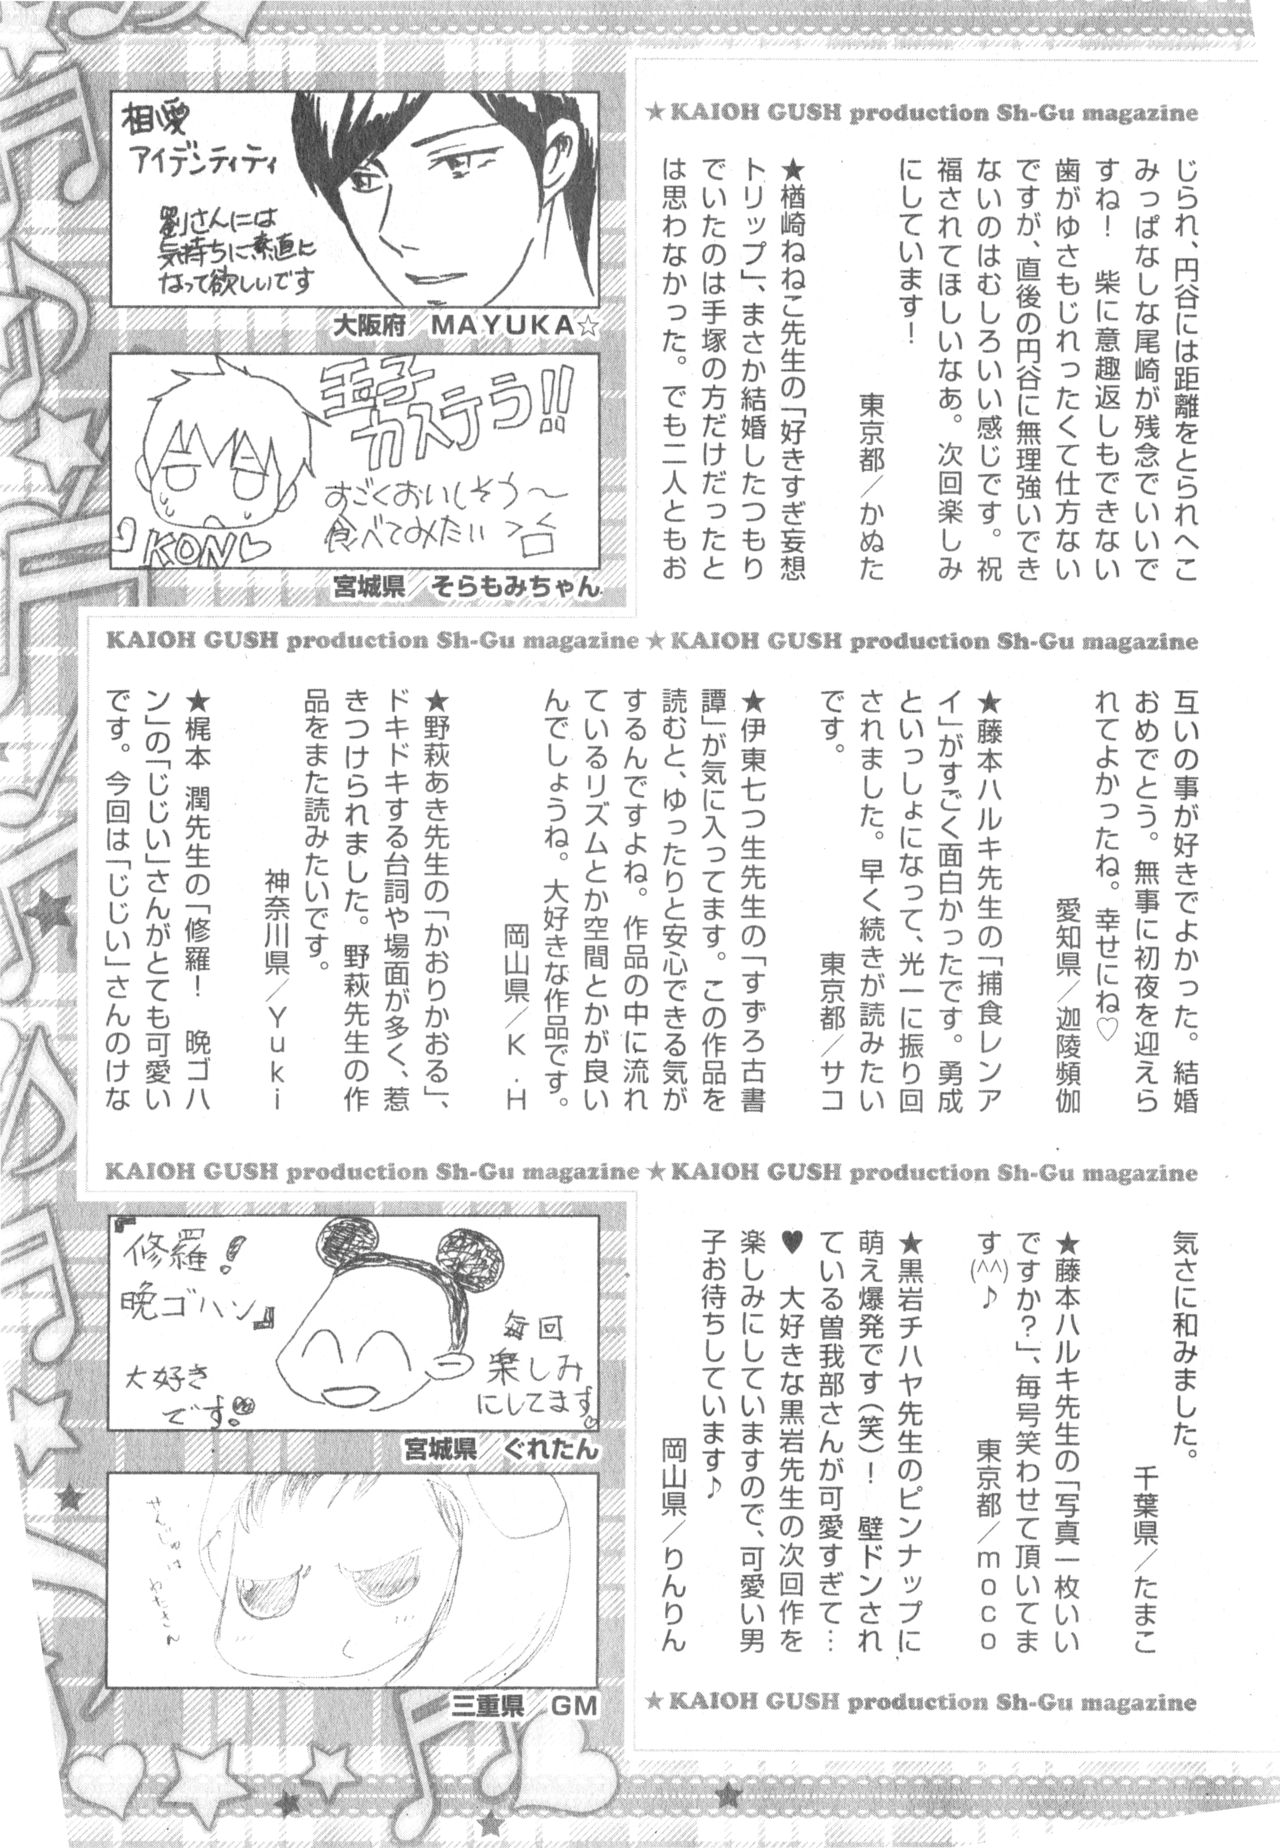 ★KAIOH GUSH production Sh-Gu magazine
じられ、円谷には距離をとられへこ
みっぱなしな尾崎が残念でいいで
すね！　柴に意趣返しもできない
歯がゆさもじれったくて仕方ない
ですが、直後の円谷に無理強いでき
ないのはむしろいい感じです。祝
福されてほしいなあ。次回楽しみ
にしています！
東京都／かぬた
★楢崎ねねこ先生の「好きすぎ妄想
トリップ」、まさか結婚したつもり
でいたのは手塚の方だけだったと
は思わなかった。でも二人ともお
相愛
アイデンティティ
劉さんには
気持ちに素直に
なって欲しいです
大阪府／MAYUKA☆
玉子
カステラ!!
すごくおいしそう〜
食べてみたい
KON♡
宮城県／そらもみちゃん
KAIOH GUSH production Sh-Gu magazine★KAIOH GUSH production Sh-Gu magazine
互いの事が好きでよかった。結婚
おめでとう。無事に初夜を迎えら
れてよかったね。幸せにね♡
愛知県／迦陵頻伽
★藤本ハルキ先生の「捕食レンア
イ」がすごく面白かったです。勇成
といっしょになって、光一に振り回
されました。早く続きが読みたい
です。
東京都／サコ
★伊東七つ生先生の「すずろ古書
譚」が気に入ってます。この作品を
読むと、ゆったりと安心できる気が
するんですよね。作品の中に流れ
ているリズムとか空間とかが良い
んでしょうね。大好きな作品です。
岡山県／K.H
★野萩あき先生の「かおりかおる」、
ドキドキする台詞や場面が多く、惹
きつけられました。野萩先生の作
品をまた読みたいです。
神奈川県／Yuki
★梶本 潤先生の「修羅！　晩ゴハ
ン」の「じじい」さんがとても可愛い
です。今回は「じじい」さんのけな
KAIOH GUSH production Sh-Gu magazine★KAIOH GUSH production Sh-Gu magazine
気さに和みました。
千葉県／たまこ
★藤本ハルキ先生の「写真一枚いい
ですか？」、毎号笑わせて頂いてま
す(^^)♪
東京都／moco
★黒岩チハヤ先生のピンナップに
萌え爆発です（笑）！　壁ドンされ
ている曽我部さんが可愛すぎて…
♥　大好きな黒岩先生の次回作を
楽しみにしていますので、可愛い男
子お待ちしています♪
岡山県／りんりん
『修羅！
晩ゴハン』
大好き
です!!
毎回
楽しみ
にしてます♡
宮城県／ぐれたん
三重県／GM
★KAIOH GUSH production Sh-Gu magazine